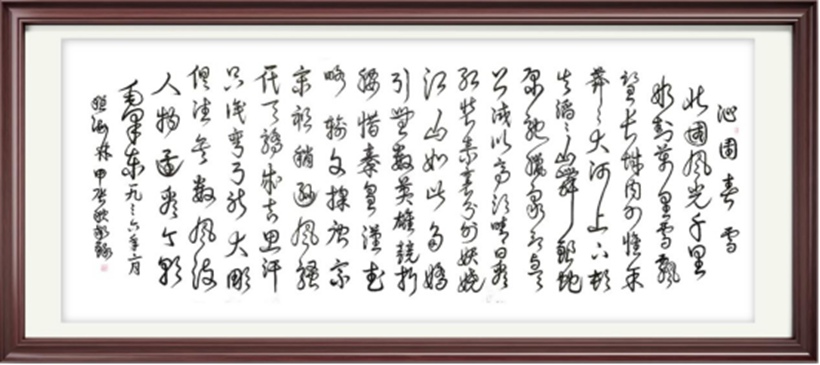 沁園春雪
北國風光千里
冰封萬里雪飄
望长城内外惟余
莽莽大河上下顿
失滔滔山舞銀蛇
原驰蜡象欲与天
公试比高须晴日看
红装素裹分外妖娆
江山如此多嬌
引無數英雄競折
腰惜秦皇漢武
略输文採唐宗
宋祖稍逊風騷一
代天骄成吉思汗
只识弯弓射大雕
俱往矣數風流
人物還看今朝
毛泽东一九三六年二月